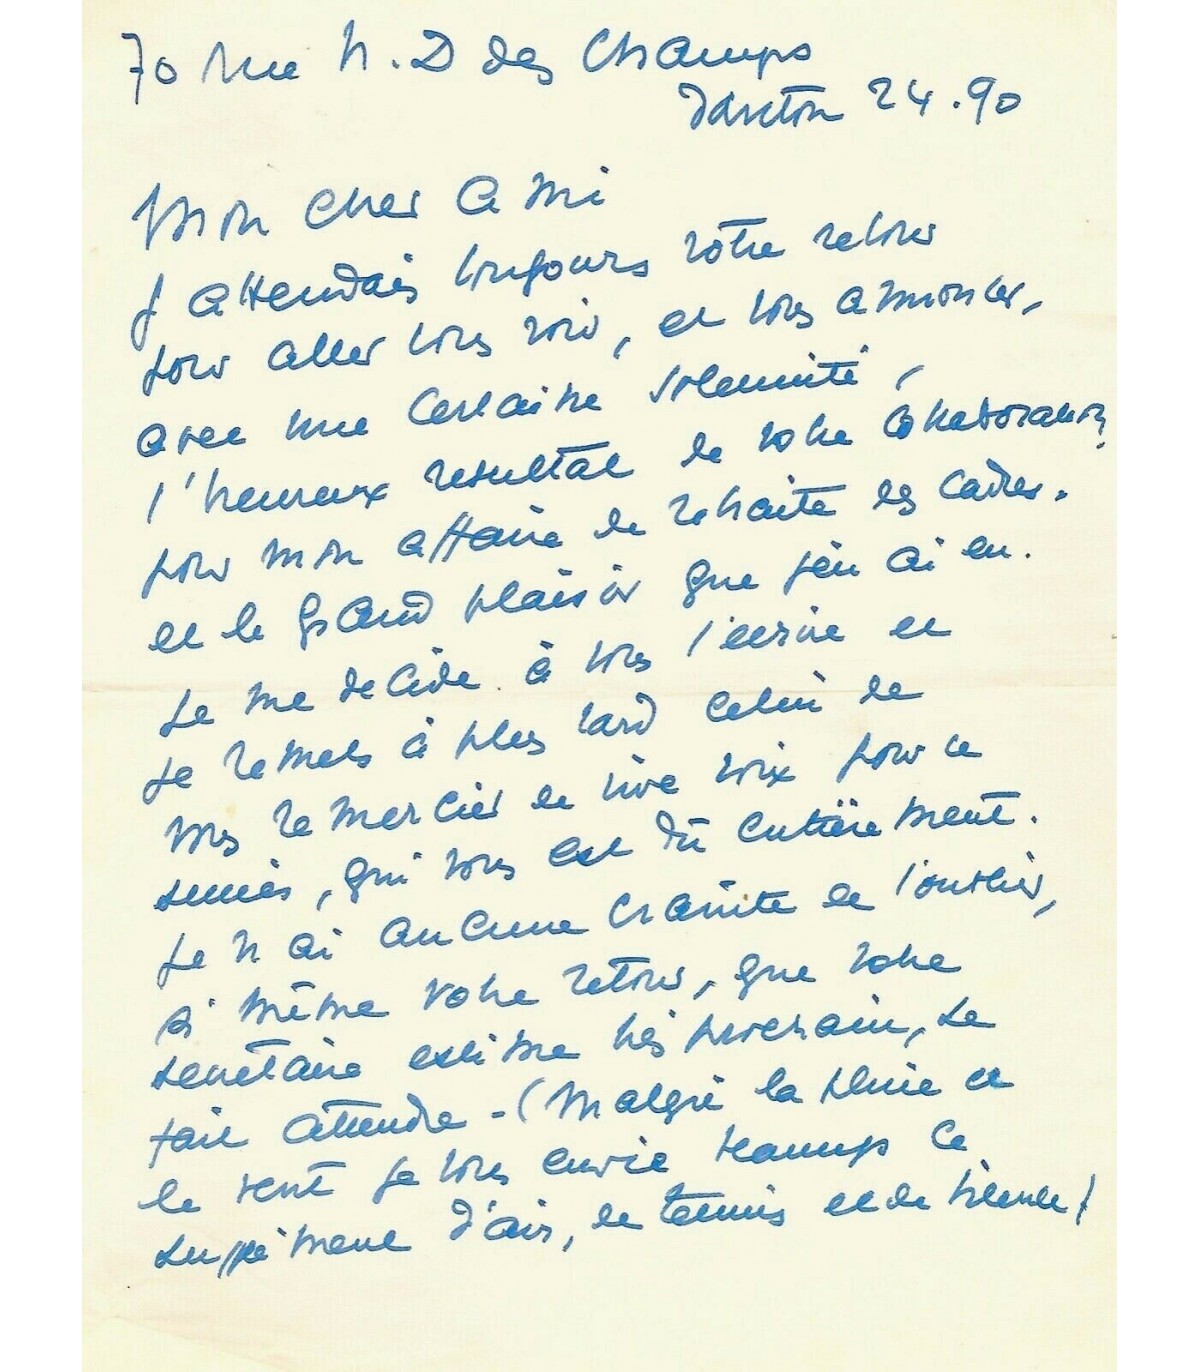 70 rue N.D des Champs
Danton 24.90
Mon cher Ami
J attendais toujours votre retour
pour aller vous voir, et vous annoncer,
avec une certaine solennité,
l'heureux resultat de votre collaboration
pour mon affaire de retraite des cadres.
et le grand plaisir que j'en ai eu.
Je me decide à vous l'ecrire et
je remets à plus tard celui de
vous remercier de vive voix pour ce
succès, qui vous est dû entièrement.
Je n ai aucune crainte de l'oublier,
si même votre retour, que votre
secretaire estime très prochain, se
fait attendre - (Malgré la pluie et
le vent je vous envie beaucoup ce
supplément d'air, de tennis et de silence)